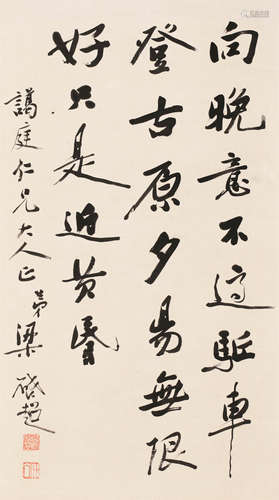 向晚意不適驅車
登古原夕陽無限
好只是近黃昏
藹庭仁兄大人正 弟梁啟超